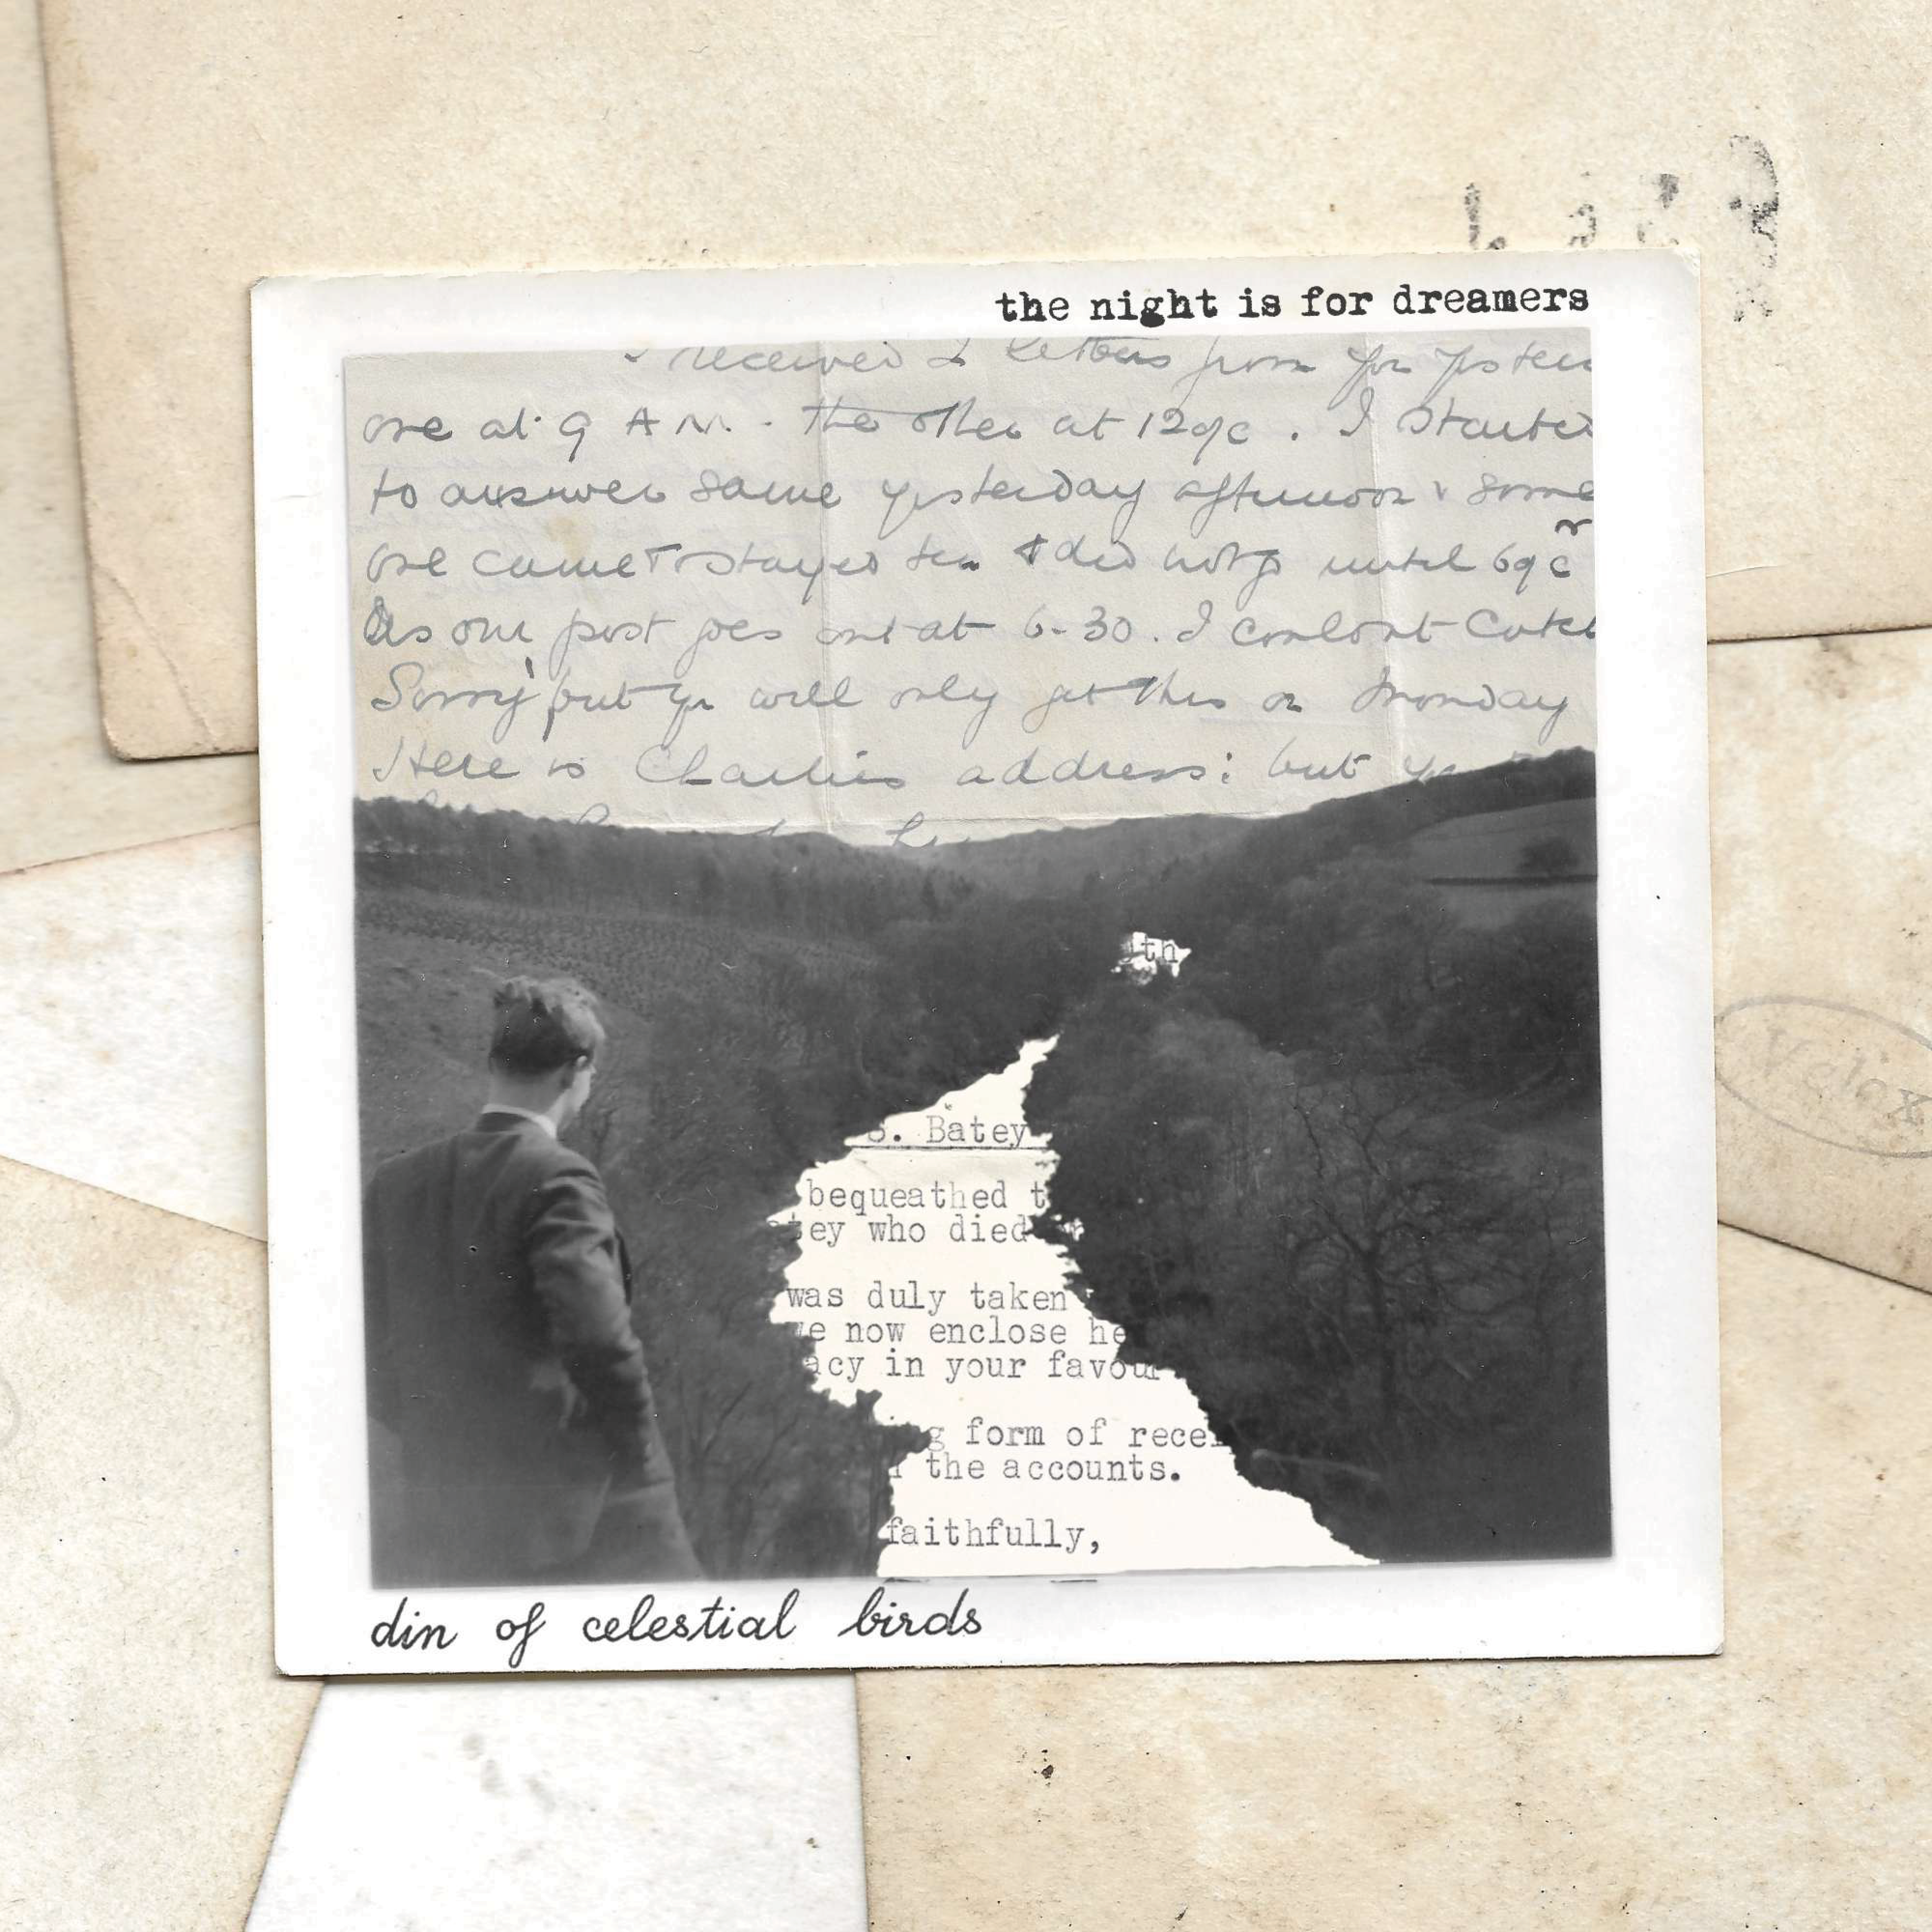 the night is for dreamers
received 2 letters from you
one at 9 A M. - the other at 12 oc . I started
to answer same yesterday afternoon & some
one came & stayed tea & did not go until 6 oc
As our post goes out at 6-30. I couldnt catch
Sorry but you will only get this on Monday
Here is Charlies address: but
th
S. Batey
bequeathed t
tey who died
was duly taken
we now enclose he
acy in your favour
g form of recei
the accounts.
faithfully,
din of celestial birds
Velox